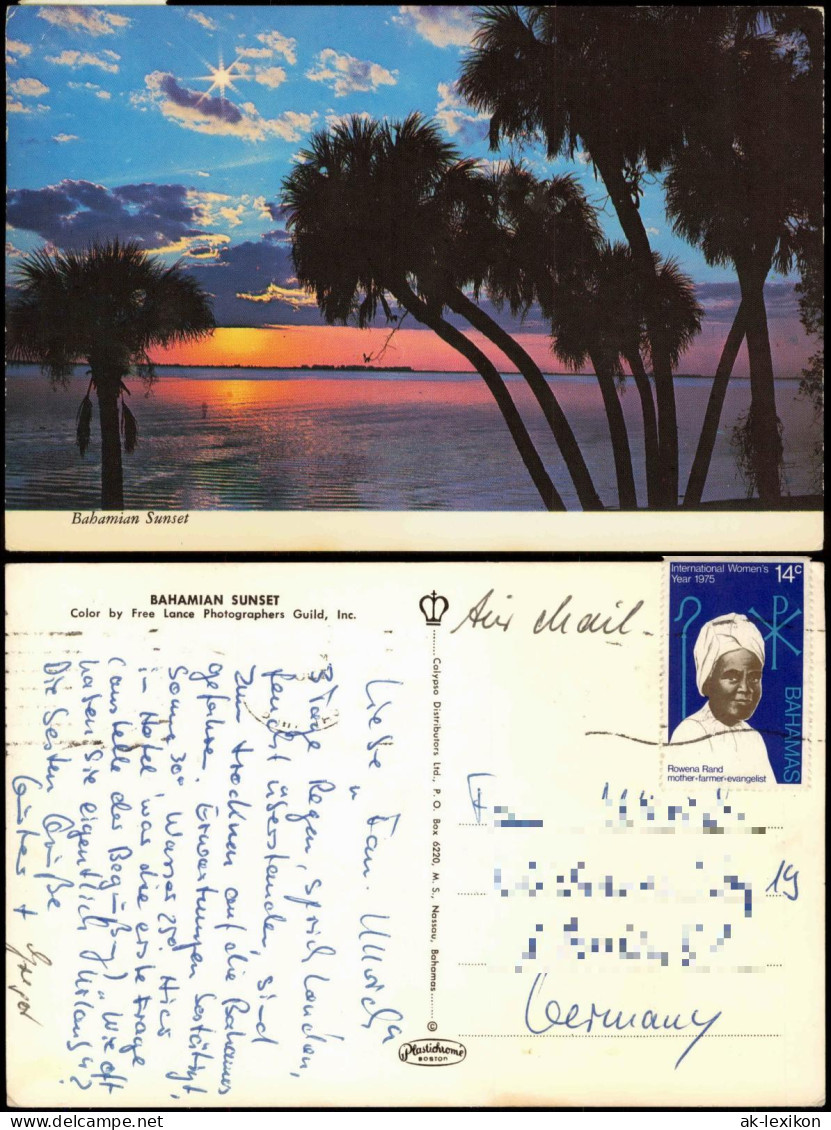 Bahamian Sunset
BAHAMIAN SUNSET
Color by Free Lance Photographers Guild, Inc.
Air Mail
International Women's
Year 1975
14c
BAHAMAS
Rowena Rand
mother-farmer-evangelist
Liebe Fam. Ullrich
3 Tage Regen, sprich London,
feucht überstanden, sind
zum trocknen auf die Bahamas
gefahren. Erwartungen bestätigt,
Sonne 30° Wasser 25°! Hier
im Hotel war die erste Frage
(anstelle der Begrüßung) "Wie oft
haben Sie eigentlich Urlaub"?
Die besten Grüße
Calypso Distributors Ltd., P. O. Box 6220, M. S., Nassau, Bahamas
©
Plastichrome
BOSTON
19
Germany
www.ansichtskarten-lexikon.de
ak-lexikon